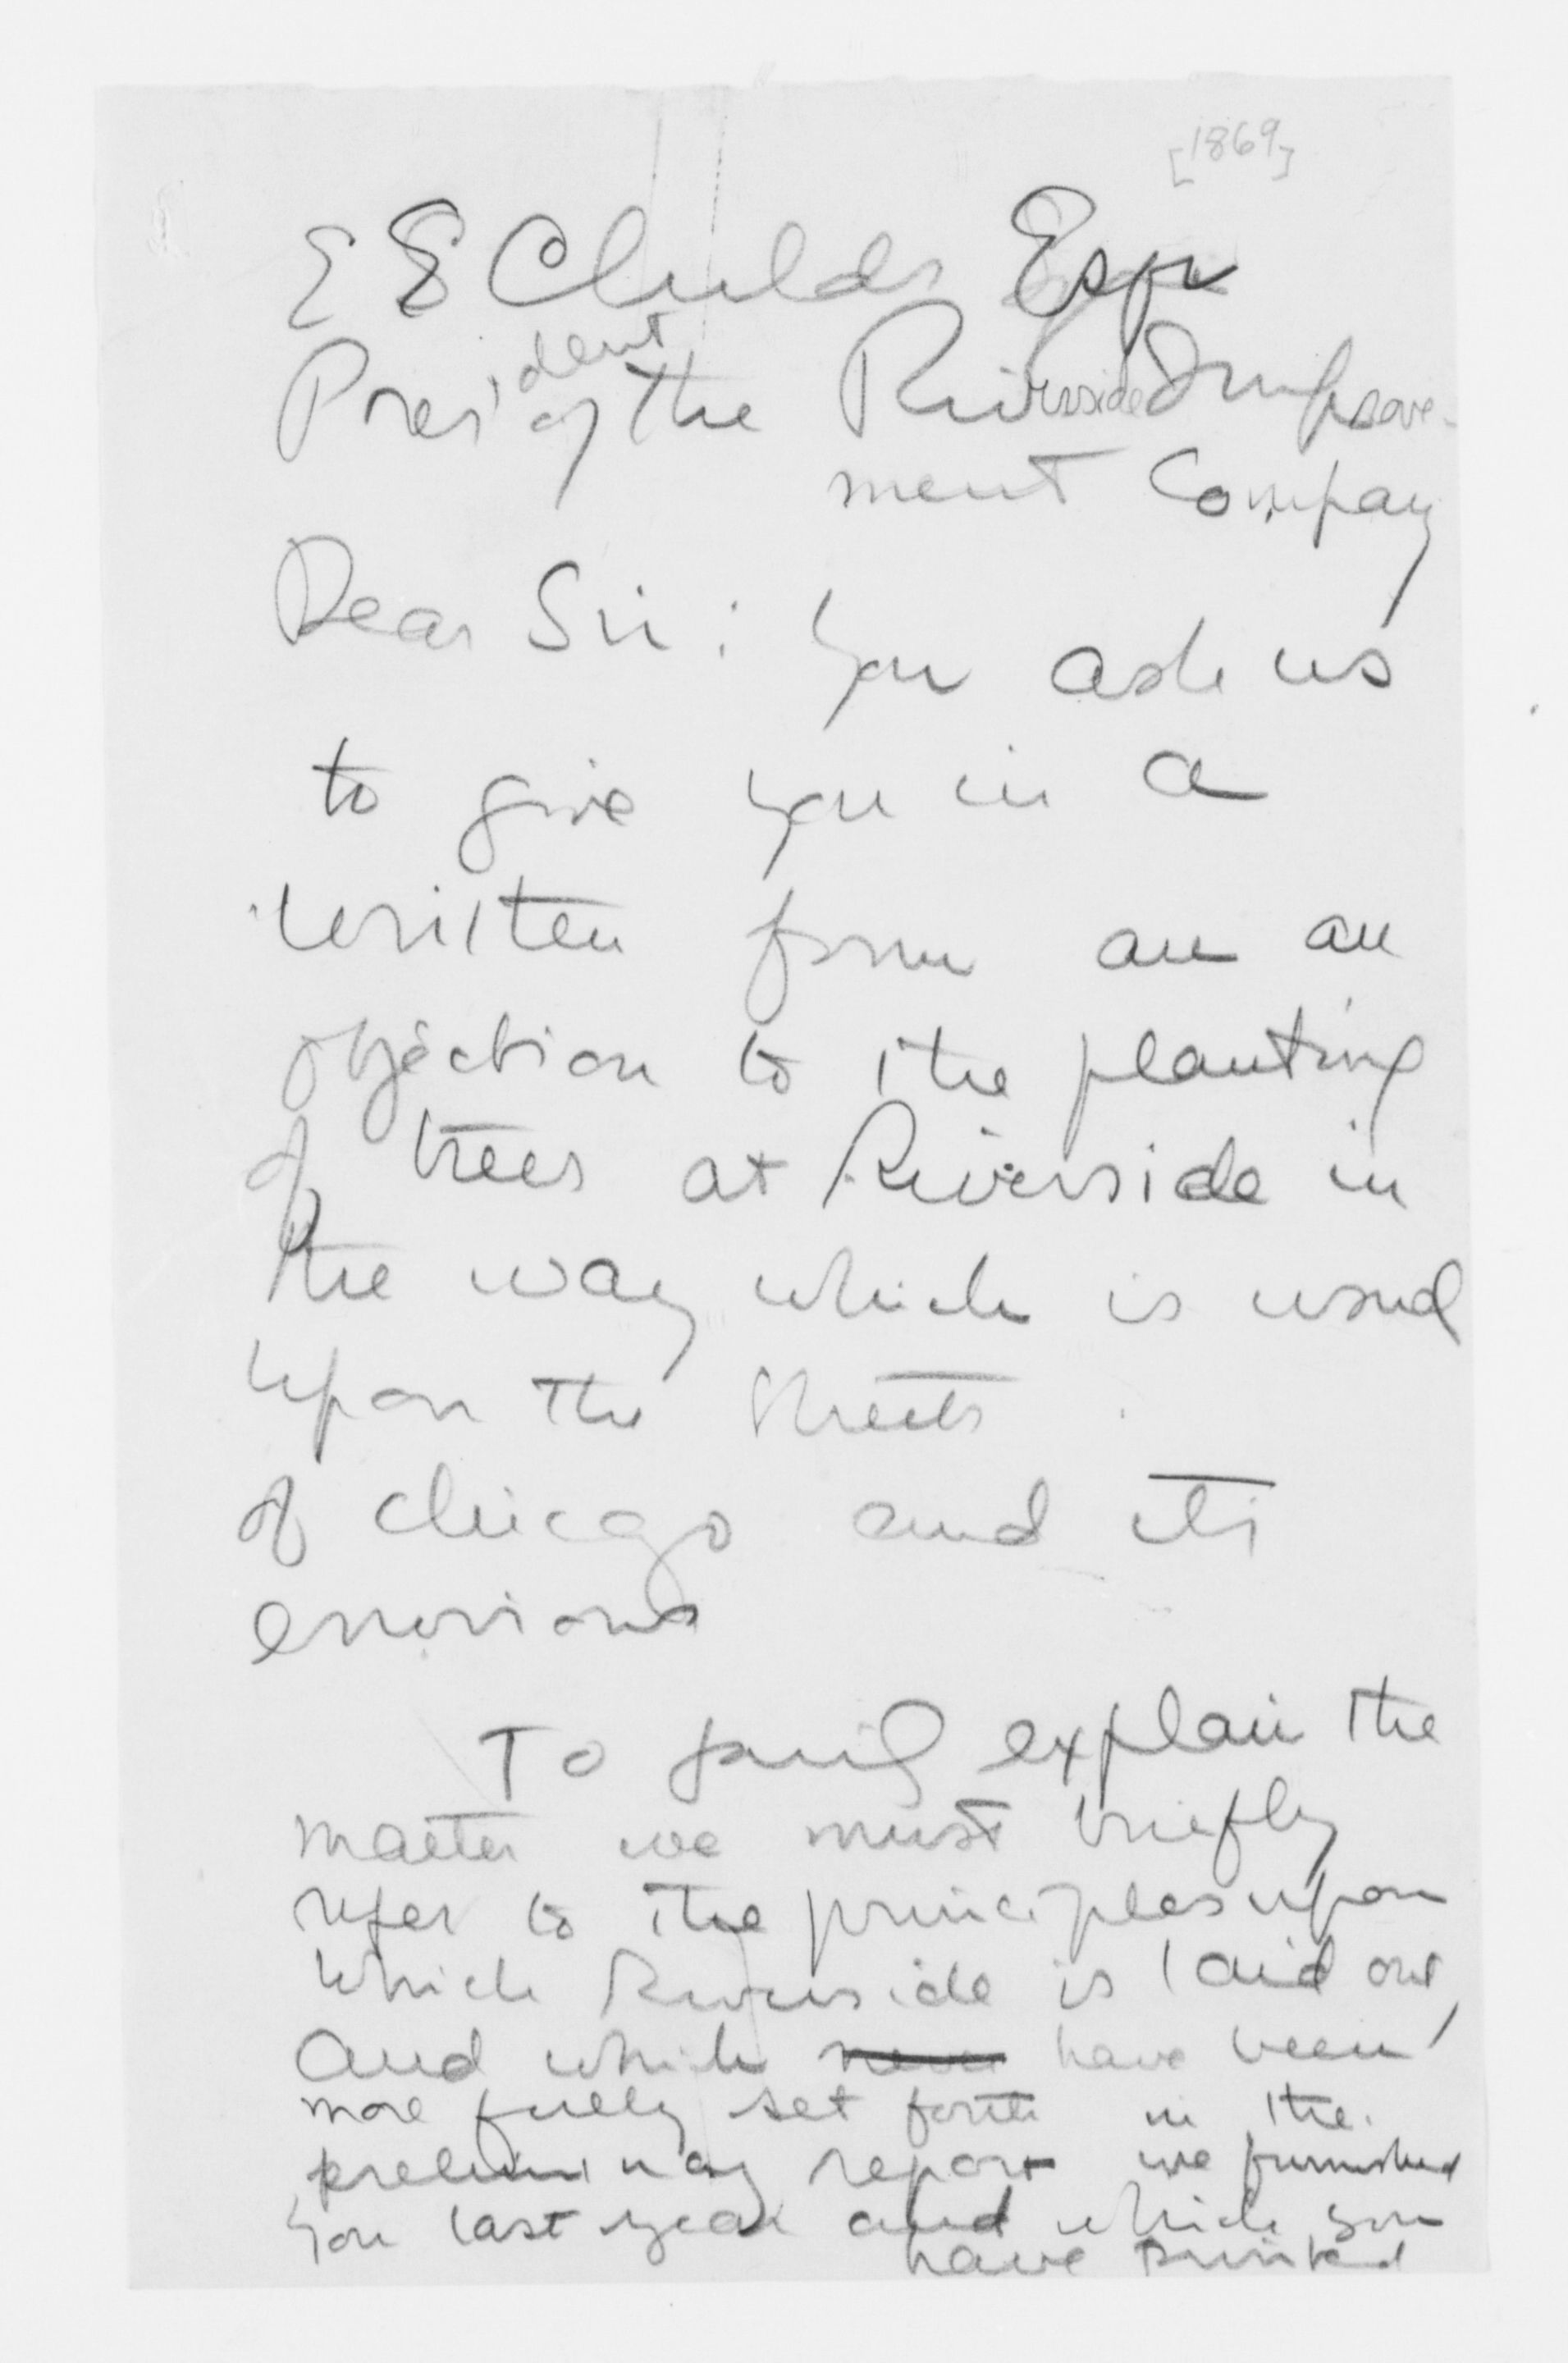 [1869]
E E Childs Esqr
President of the Riverside Improve-
ment Company
Dear Sir : You ask us
to give you in a
written form an an
objection to the planting
of trees at Riverside in
the way which is usual
upon the streets
of Chicago and its
environs
To explain the
matter we must briefly
refer to the principles upon
which Riverside is laid out,
and which have been
more fully set forth in the
preliminary report we furnished
you last year and which you
have printed